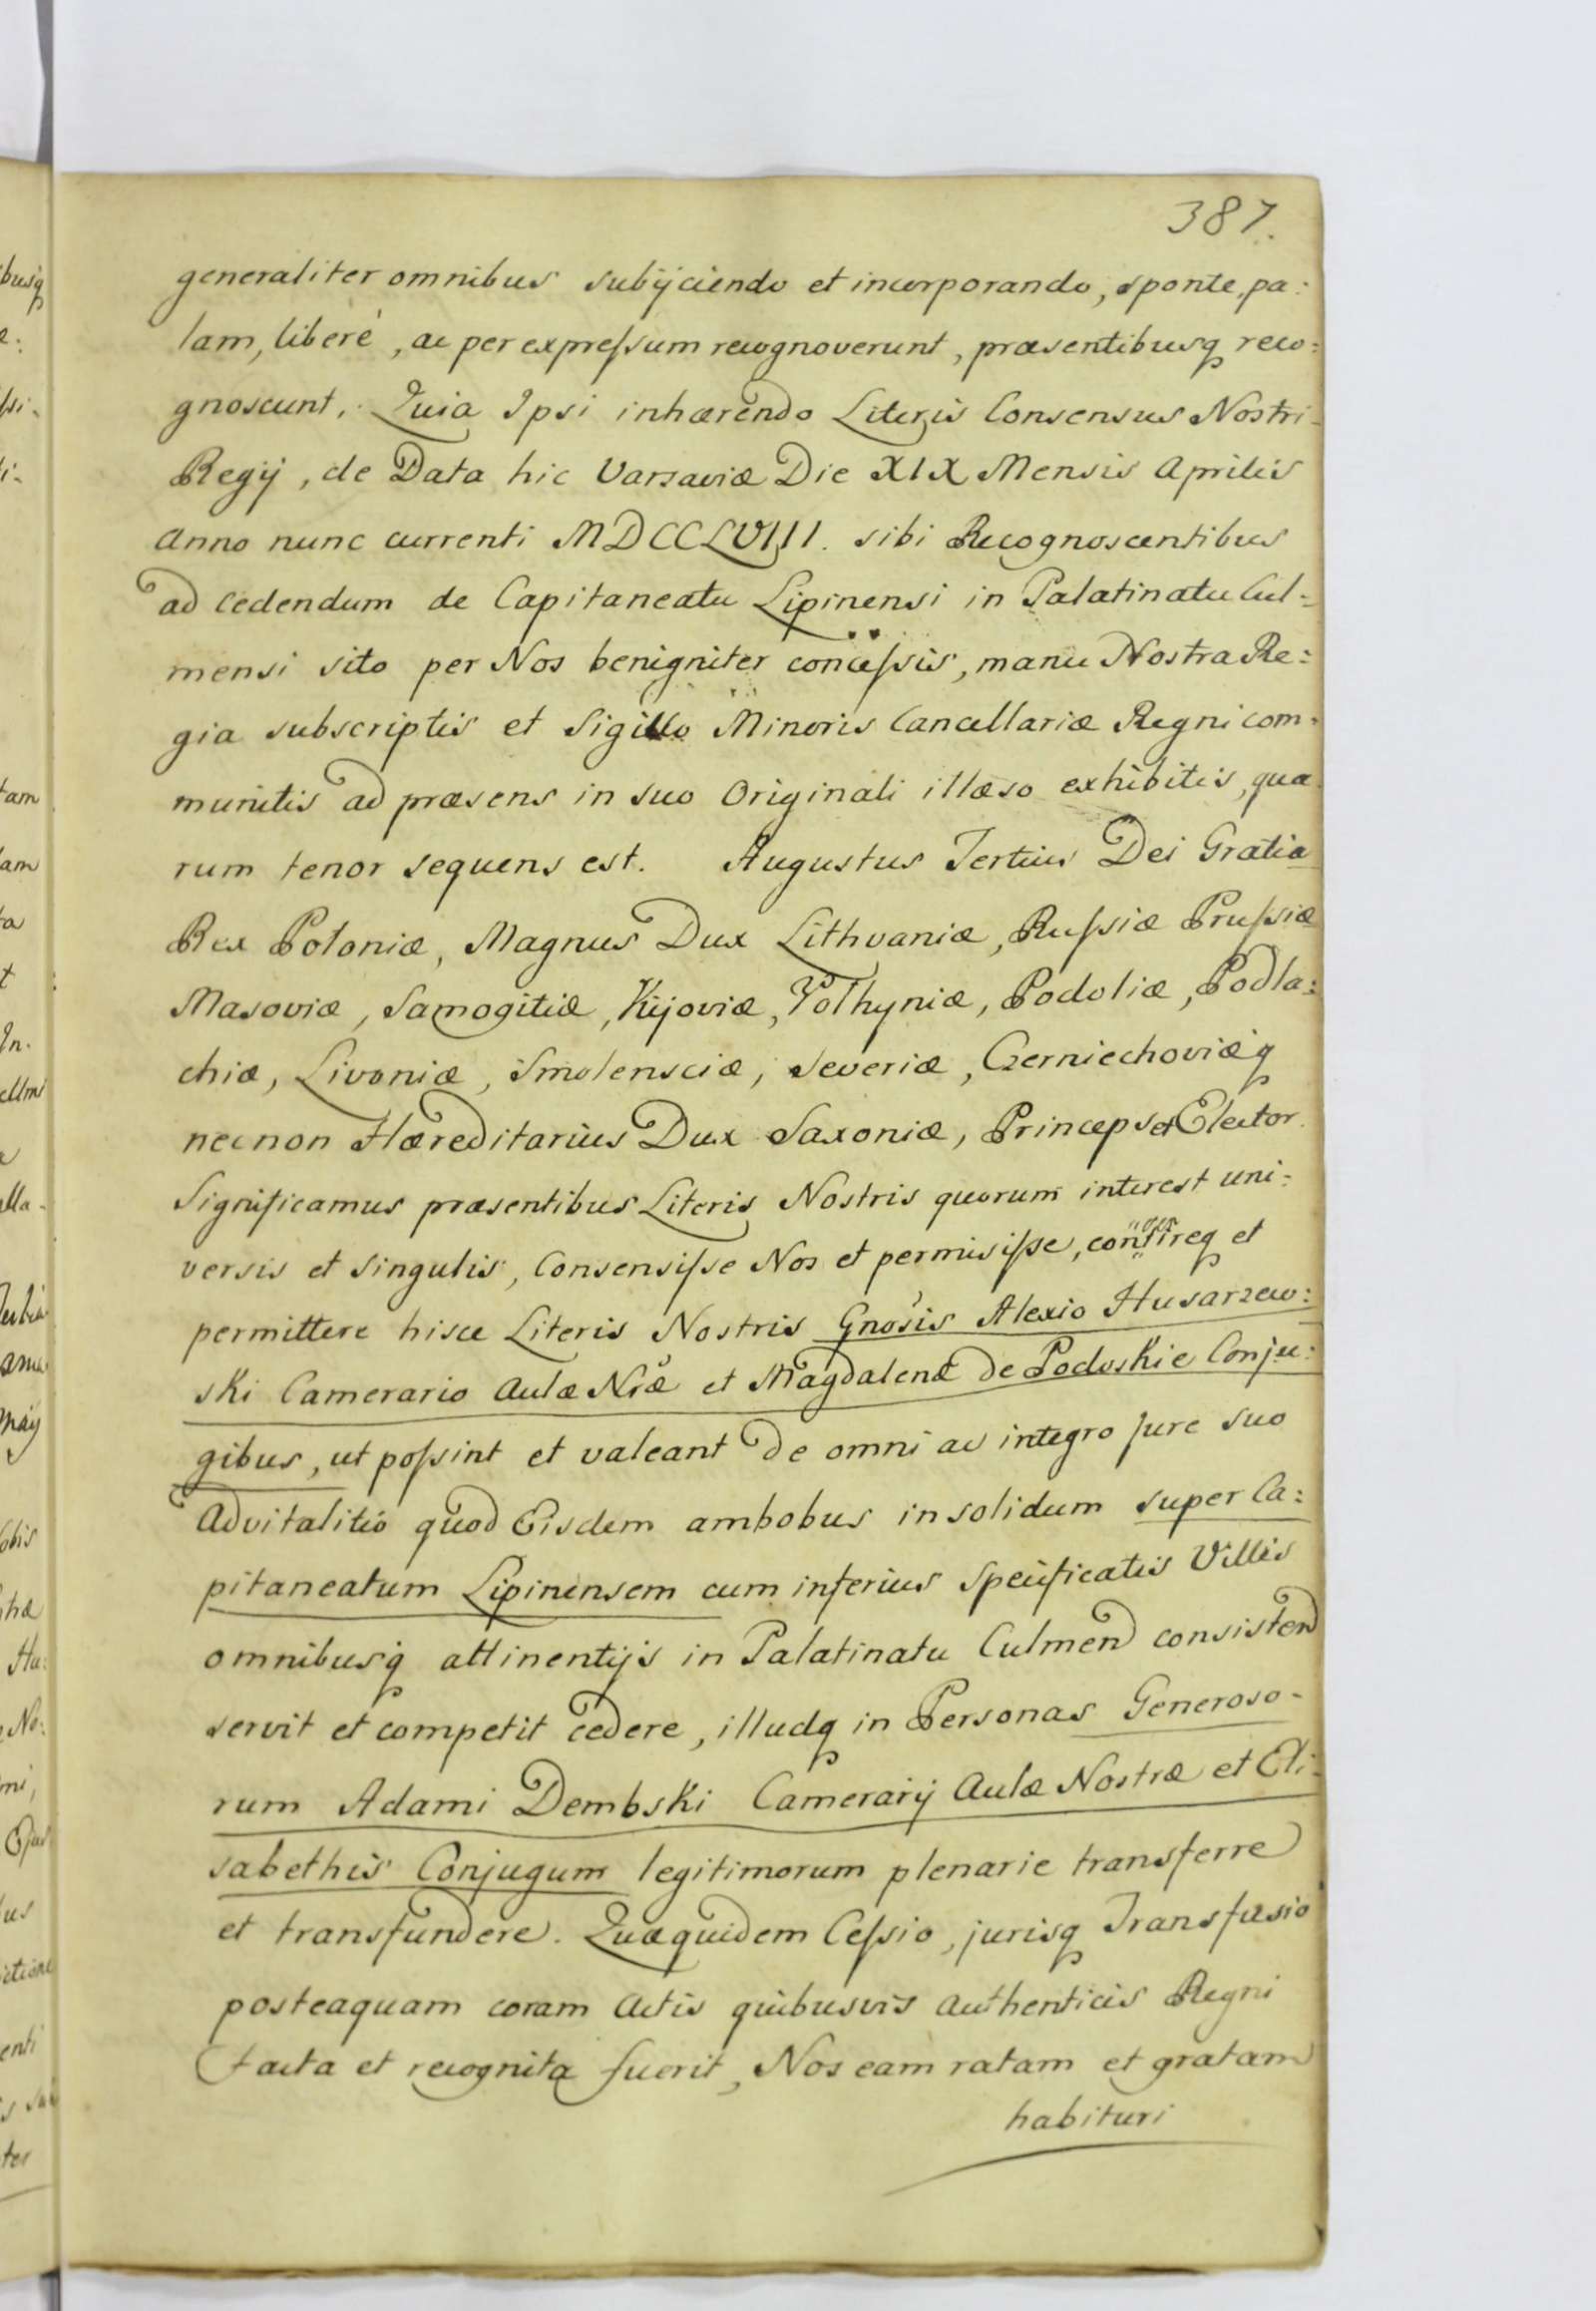 387.
generaliter omnibus subijciendo et incorporando, sponte, pa:
lam, liberè, ac per expreſsum recognoverunt, præsentibusq reco:
gnoscunt. Quia Ipsi inhærendo Literis Consensus Nostri
Regij, de Data hic Varsaviæ Die XIX Mensis Aprilis
Anno nunc currenti MDCCLVIII. sibi Recognoscentibus
ad cedendum de Capitaneatu Lipinensi in Palatinatu Cul-
mensi sito per Nos benigniter conceſsis, manu Nostra Re:
gia subscriptis et Sigillo Minoris Cancellariæ Regni com-
munitis ad præsens in suo Originali illæso exhibitis, qua
rum tenor sequens est. Augustus Tertius Dei Gratia
Rex Poloniæ, Magnus Dux Lithvaniæ, Ruſsiæ Pruſsiæ
Masoviæ, Samogitiæ, Kijoviæ, Volhyniæ, Podoliæ, Podla:
chiæ, Livoniæ, Smolensciæ, Severiæ, Czerniechoviæq
necnon Hæreditarius Dux Saxoniæ, Princeps et Elector.
Significamus præsentibus Literis Nostris quorum interest uni:
versis et singulis, Consensiſse Nos et permisiſse, consireq et
permittere hisce Literis Nostris Gnosis Alexio Husarzew:
ski Camerario Aulæ Nræ et Magdalenæ de Podoskie Conju:
gibus, ut poſsint et valeant de omni ac integro Jure suo
Advitalitio quod Eisdem ambobus insolidum super Ca:
pitaneatum Lipinensem cum inferius specificatis Villis
omnibusq attinentijs in Palatinatu Culmen consisten
servit et competit cedere, illudq in Personas Generoso-
rum Adami Dembski Camerarij Aulæ Nostræ et Eli:
sabethis Conjugum legitimorum plenarie transferre
et transfundere. Quæquidem Ceſsio, jurisq Transfusio
posteaquam coram Actis quibusvis Authenticis Regni
facta et recognita fuerit, Nos eam ratam et gratam
habituri